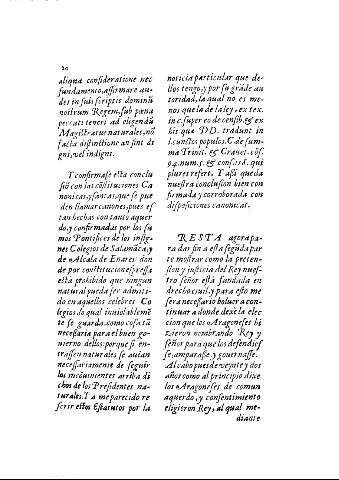 20
aliqua consideratione nec
fundamento, assirmare au-
det in suis scriptis dominũ
nostrum Regem, sub pœna
peccati teneri ad eligendũ
Magistratus naturales, nõ
facta distinctione an sint di
gni, vel indigni.
Y confirmase esta conclu
siõ con las cõstituciones Ca
nonicas, y santas, que se pue
den llamar canones, pues es
tan hechas con tanto acuer
do, y confirmadas por los su
mos Pontifices de los insig-
nes Colegios de Salamãca, y
de Alcala de Enares: don
de por constitucion expressa
està prohibido que ningun
natural pueda ser admiti-
do en aquellos celebres Co
legios. lo qual inuiolablemẽ
te se guarda. como cosa tã
necessaria para el buen go-
uierno dellos: porque si en-
trassen naturales se auian
necessariamente de seguir
los incõuinientes arriba di
chos de los Presidentes na-
turales. Y a me parecido re
ferir estos Estatutos por la
noticia particular que de-
llos tengo, y por su grãde au
toridad, la qual no es me-
nos que la de la ley, ex tex.
in c. super eo de censib. & ex
his que DD. tradunt in
iscunctos populos. C. de sum-
ma Trinit. & Crauet. cõs.
94. num. 5. & cons. 18. qui
plures refert. Y assi queda
nuestra conclusion bien con
firmada y corroborada con
disposiciones canonicas.
RESTA agora pa-
ra dar fin a esta segũda par
te mostrar como la preten-
sion y justicia del Rey nues-
tro señor està fundada en
drecho ciuil, y para esto me
sera necessario boluer a con-
tinuar a donde dexè la elec
cion que los Aragoneses hi
zieron nombrando Rey y
señor para que los defendies
se, amparasse, y gouernasse.
Al cabo pues de veynte y dos
años como al principio dixe
los Aragoneses de comun
aquerdo, y consentimiento
eligieron Rey, al qual me-
diante